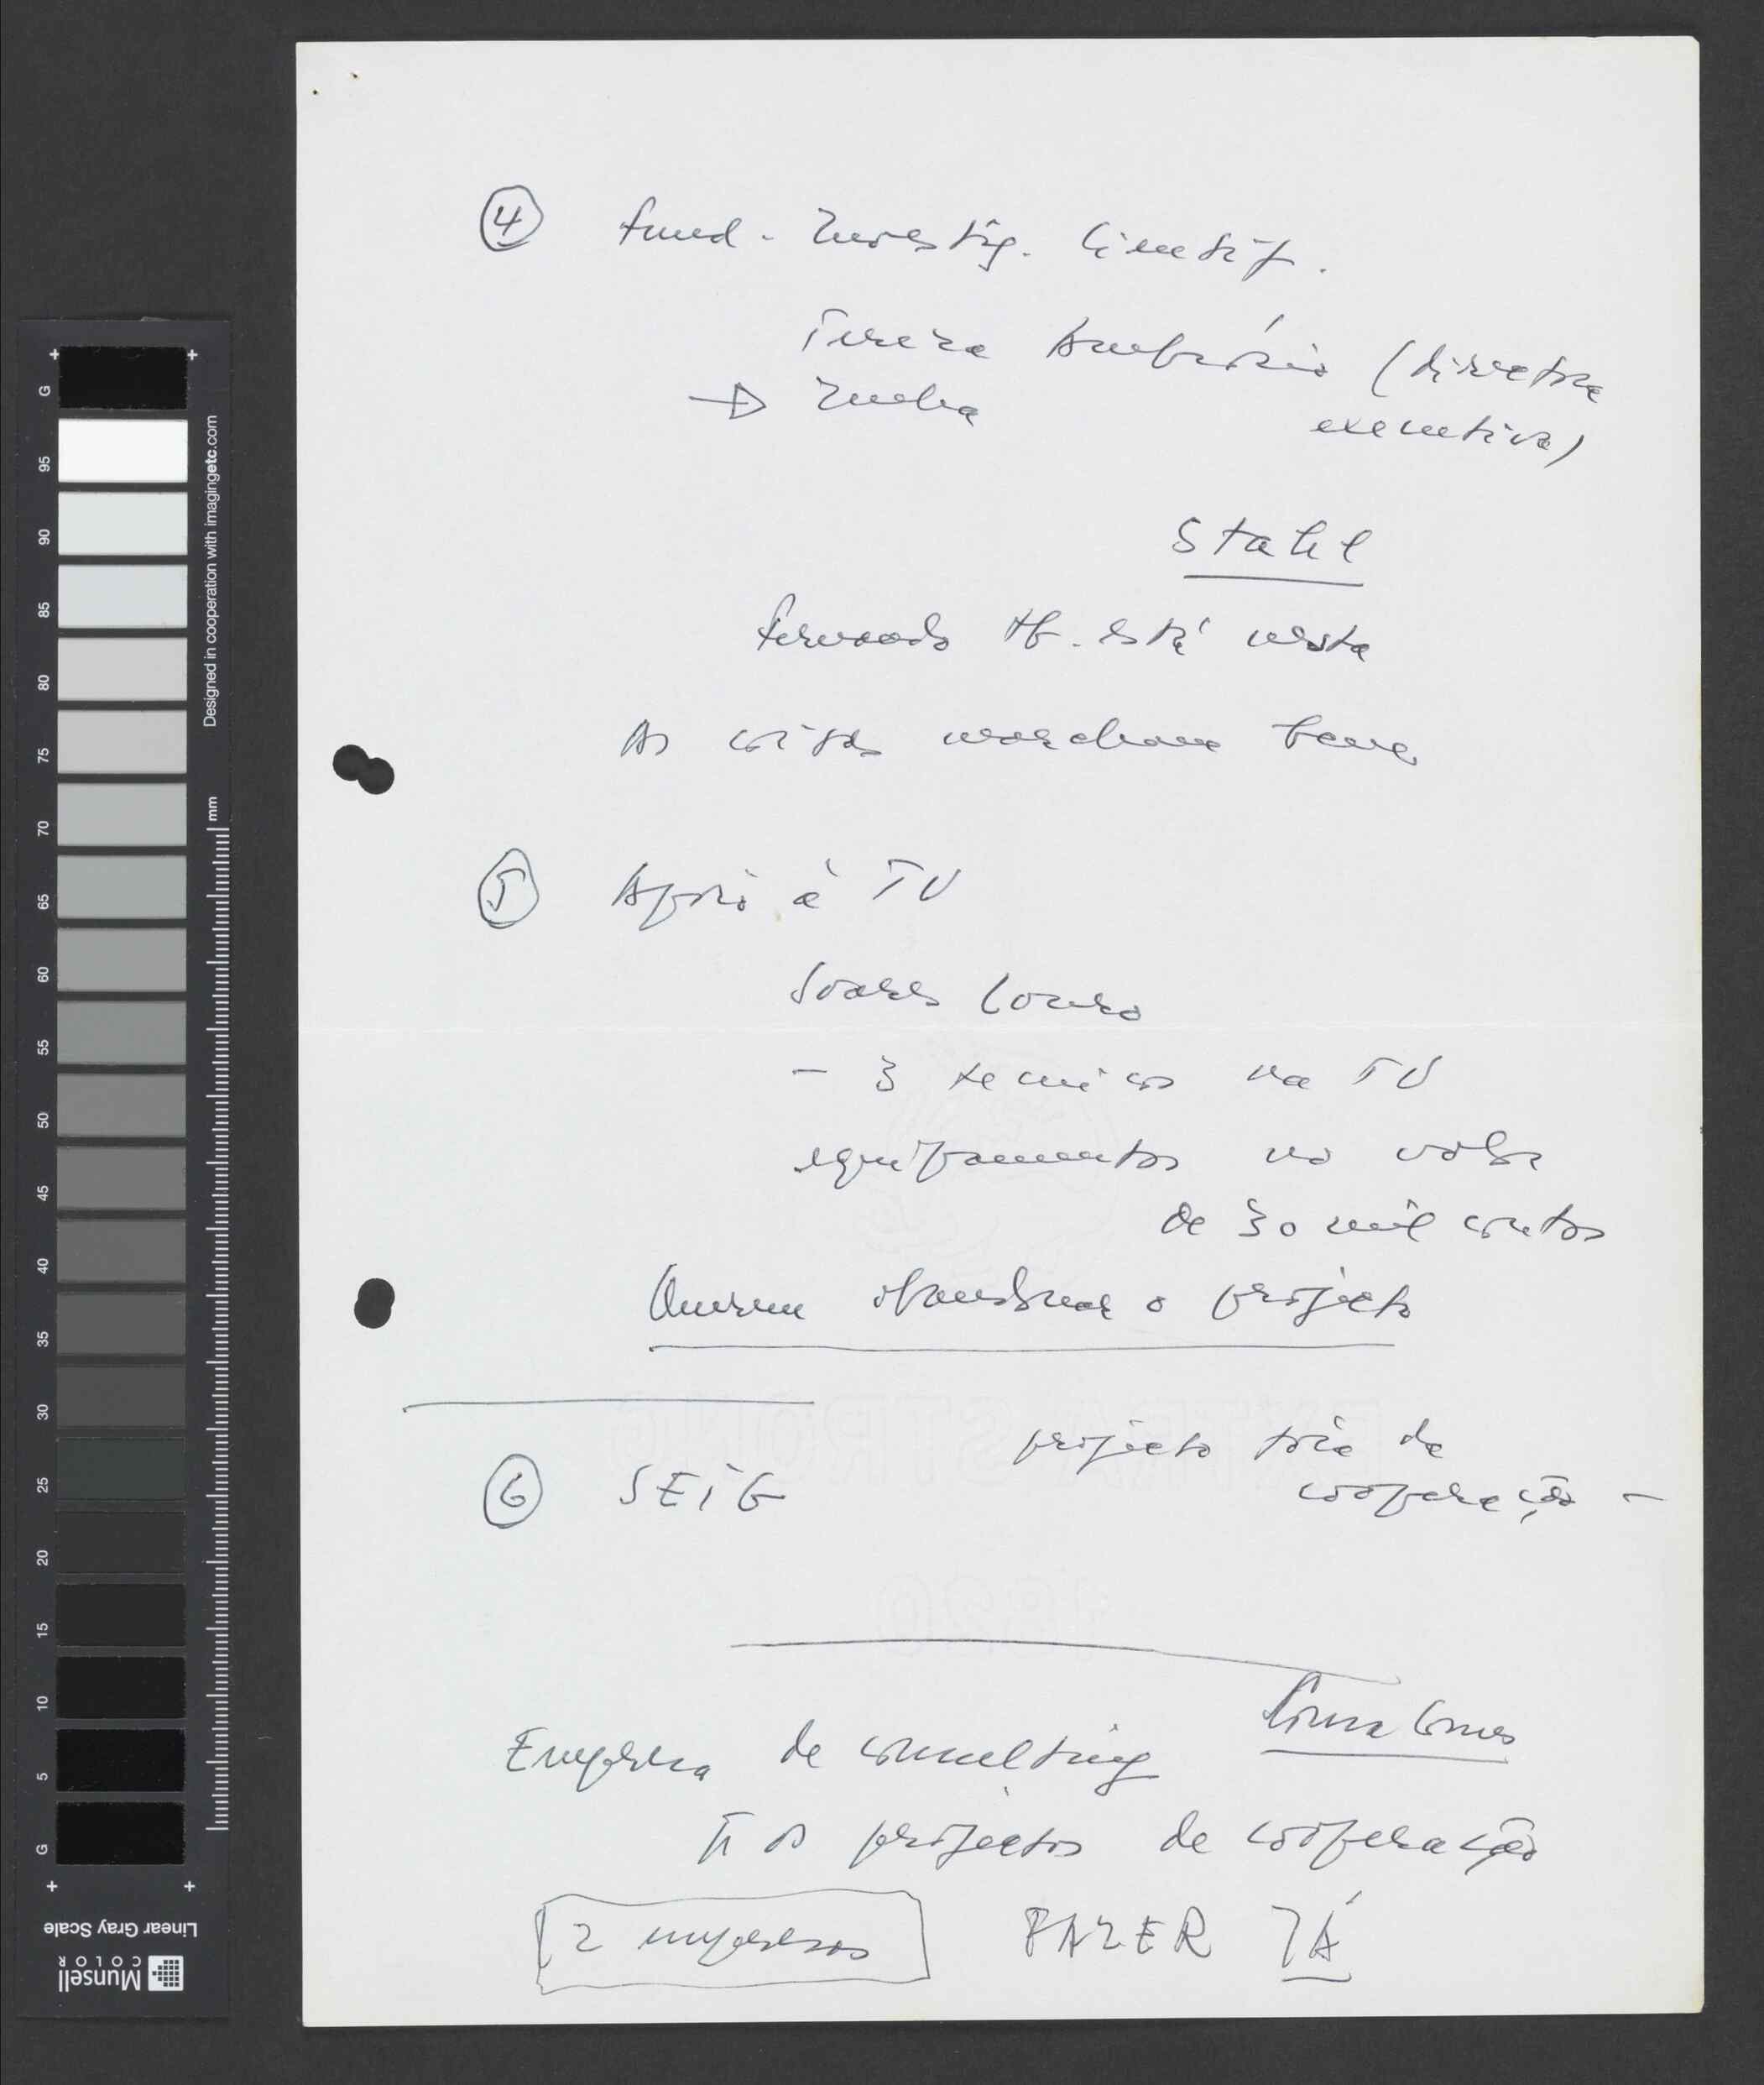 4 Fund. Investig. Científ.
Tereza Ambrósio (directora
→ Zurba
executiva)
Stahl
Fernando tb. está nesta
As coisas marcham bem
5 Apoio à TV
Soares Louro
- 3 técnicos na TV
equipamentos no valor
de 30 mil contos
Querem abandonar o projecto
projecto tóia de
6 SEIG
cooperação -
Empresa de consulting
os projectos de cooperação
2 empresas FAZER JÁ
G 95 90 85 80 75 70 65 60 55 50 45 40 35 30 25 20 15 10 5 G
Designed in cooperation with imagingetc.com
mm
Linear Gray Scale
Munsell
COLOR
EXTRA STRONG
1820